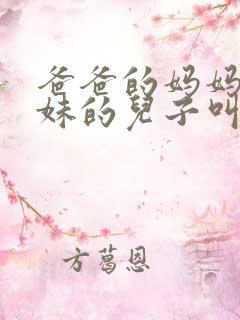 爸爸的妈妈
妹的兒子叫
方葛恩